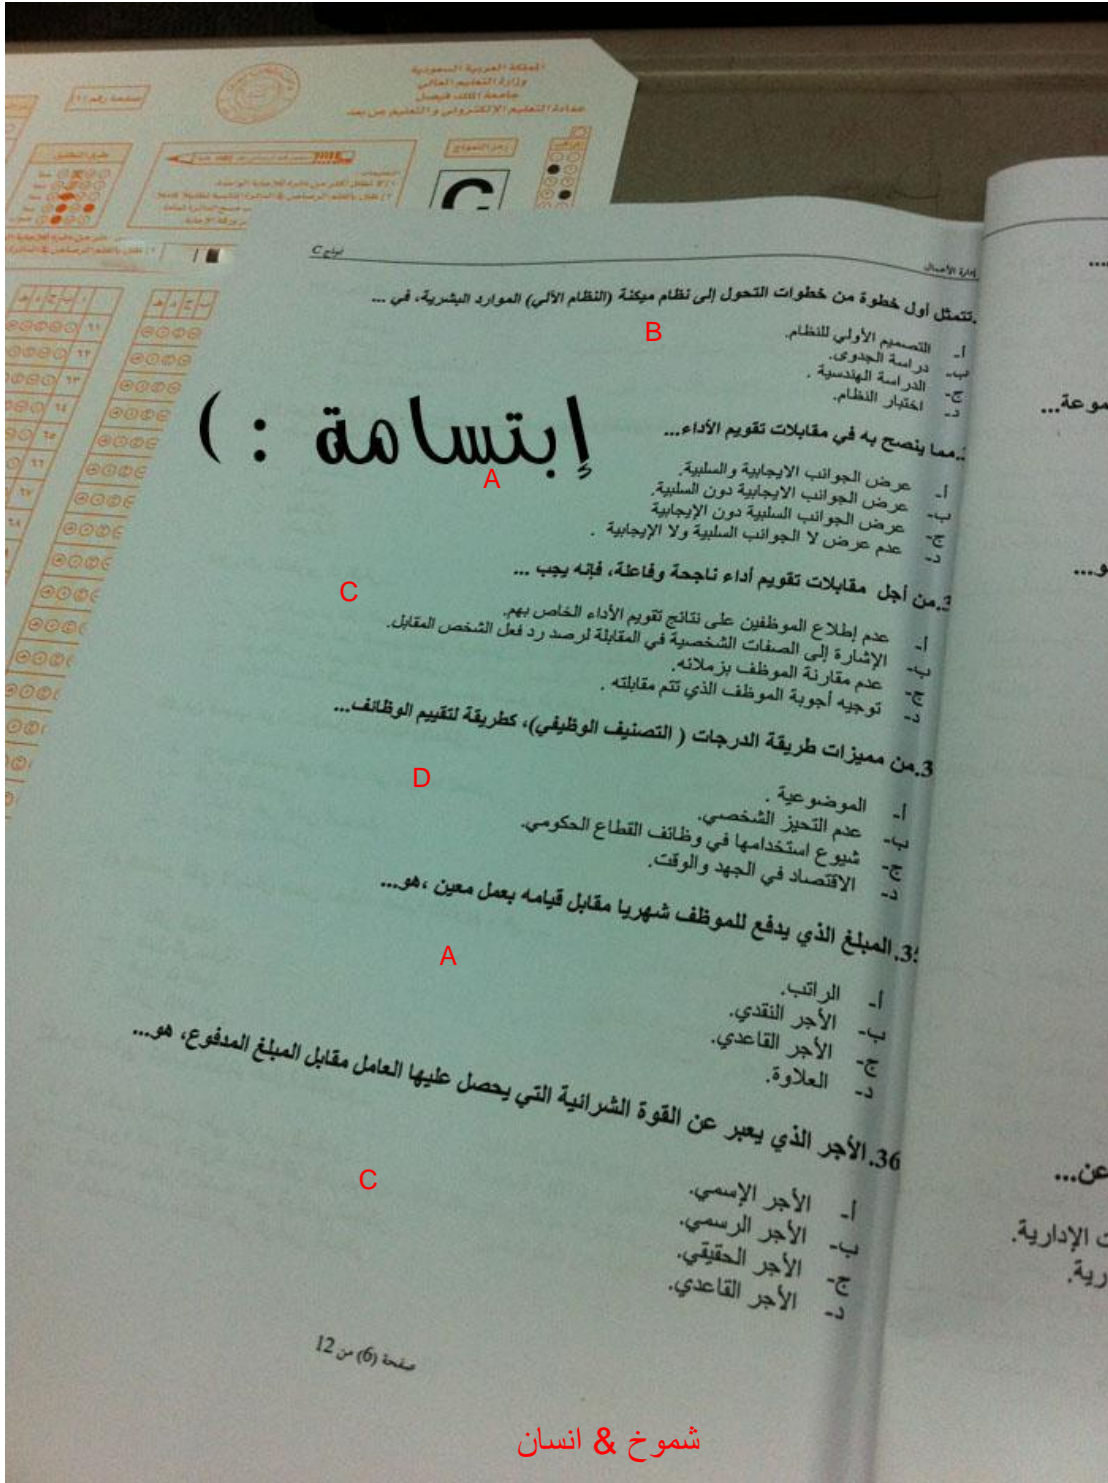 المملكة العربية السعودية
وزارة التعليم العالي
جامعة الملك فيصل
عمادة التعليم الإلكتروني والتعليم عن بعد
صفحة رقم (١)
رمز النموذج
C
نموذج C
إدارة الأعمال
.تتمثل أول خطوة من خطوات التحول إلى نظام ميكنة (النظام الآلي) الموارد البشرية، في ...
B
أ- التصميم الأولي للنظام.
ب- دراسة الجدوى.
ج- الدراسة الهندسية .
د- اختبار النظام.
إبتسامة : )
.مما ينصح به في مقابلات تقويم الأداء...
A
أ- عرض الجوانب الايجابية والسلبية.
ب- عرض الجوانب الايجابية دون السلبية.
ج- عرض الجوانب السلبية دون الإيجابية
د- عدم عرض لا الجوانب السلبية ولا الإيجابية .
.من أجل مقابلات تقويم أداء ناجحة وفاعلة، فإنه يجب ...
C
أ- عدم إطلاع الموظفين على نتائج تقويم الأداء الخاص بهم.
ب- الإشارة إلى الصفات الشخصية في المقابلة لرصد رد فعل الشخص المقابل.
ج- عدم مقارنة الموظف بزملائه.
د- توجيه أجوبة الموظف الذي تتم مقابلته .
3.من مميزات طريقة الدرجات ( التصنيف الوظيفي)، كطريقة لتقييم الوظائف...
D
أ- الموضوعية .
ب- عدم التحيز الشخصي.
ج- شيوع استخدامها في وظائف القطاع الحكومي.
د- الاقتصاد في الجهد والوقت.
35.المبلغ الذي يدفع للموظف شهريا مقابل قيامه بعمل معين ،هو...
A
أ- الراتب.
ب- الأجر النقدي.
ج- الأجر القاعدي.
د- العلاوة.
36.الأجر الذي يعبر عن القوة الشرائية التي يحصل عليها العامل مقابل المبلغ المدفوع، هو...
C
أ- الأجر الإسمي.
ب- الأجر الرسمي.
ج- الأجر الحقيقي.
د- الأجر القاعدي.
صفحة (6) من 12
شموخ & انسان